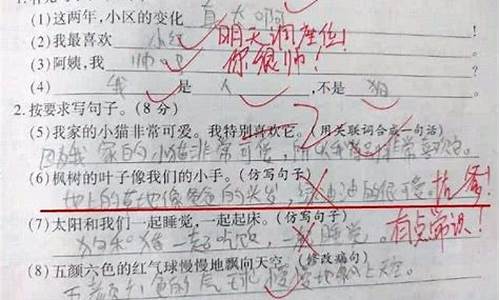 (1)这两年,小区的变化 真大啊
(2)我最喜欢 小红 明天调座位!
(3)阿姨,我 帅吧 你很帅!
(4) 我 是 人 ,不是 狗
2.按要求写句子。(8 分)
(5)我家的小猫非常可爱。我特别喜欢它。(用关联词合成一句话)
因为我家的小猫非常可爱,所以我 非常喜欢它。
(6)枫树的叶子像我们的小手。(仿写句子)
地上的草地像爸爸的头发,绿油油的很可爱。 抗爹!
(7)太阳和我们一起睡觉,一起起床。(仿写句子)
狗和猪一起吃饭,一起睡觉。 有点常识!
(8)五颜六色的红气球慢慢地飘向天空。(修改病句)
五颜六色的气球慢慢地飘上天空。